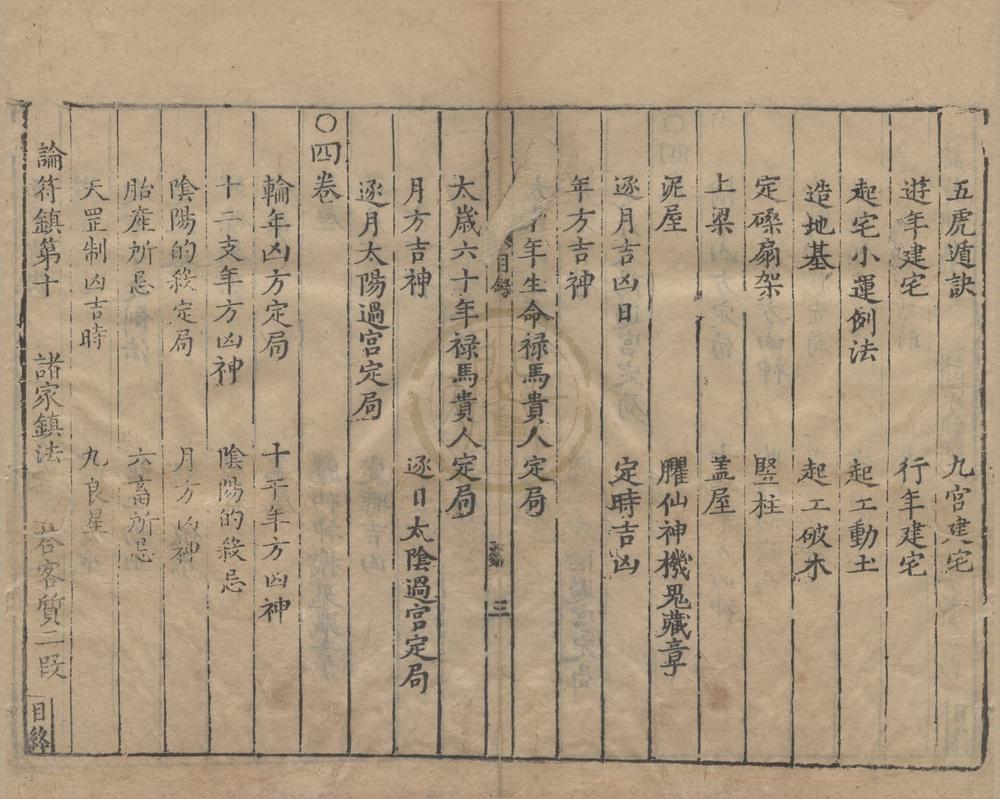 五虎遁訣 九宮建宅
遊年建宅 行年建宅
起宅小運例法 起工動土
造地基 起工破木
定磉扇架 竪柱
上梁 盖屋
泥屋 臞仙神機鬼藏章
逐月吉凶日 定時吉凶
年方吉神
年生命禄馬貴人定局
目録 三
太歳六十年禄馬貴人定局
月方吉神 逐日太陰過宮定局
逐月太陽過宮定局
〇四卷
輪年凶方定局 十干年方凶神
十二支年方凶神 陰陽的殺忌
陰陽的殺定局 月方凶神
胎産所忌 六畜所忌
天罡制凶吉時 九良星
論符鎮第十 諸家鎮法 答客質二段
目終